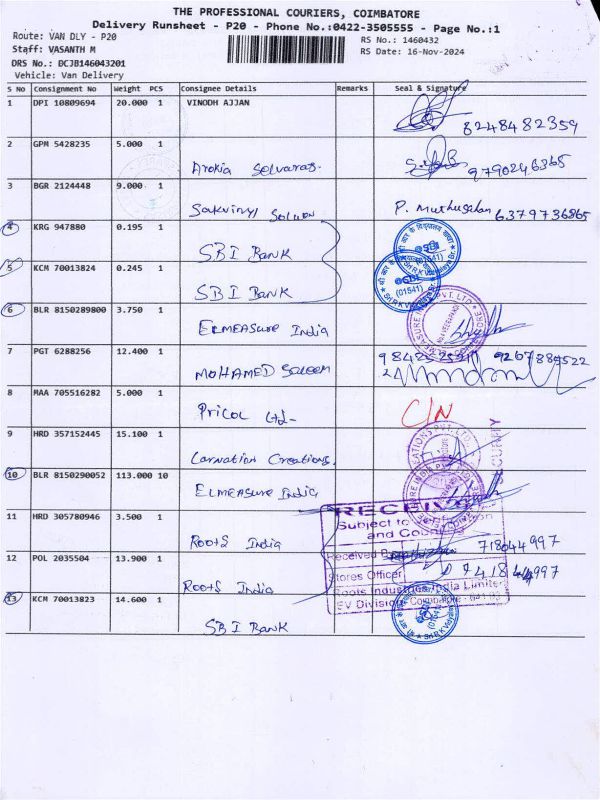 THE PROFESSIONAL COURIERS, COIMBATORE
Delivery Runsheet - P20 - Phone No.:0422-3505555 - Page No.:1
Route: VAN DLY - P20
RS No.: 1460432
Staff: VASANTH M
RS Date: 16-Nov-2024
DRS No.: DCJB146043201
Vehicle: Van Delivery
S No Consignment No Weight PCS Consignee Details Remarks Seal & Signature
1 DPI 10809694 20.000 1 VINODH AJJAN
8248482359
2 GPM 5428235 5.000 1
Arokia Selvaraj. 9790246365
3 BGR 2124448 9.000 1
P. Muthuselvan 6379736865
4 KRG 947880 0.195 1
SBI BANK
5 KCM 70013824 0.245 1
SBI BANK
(01541)
6 BLR 8150289800 3.750 1
ELMEASURE India
7 PGT 6288256 12.400 1
MOHAMED Saleem
8 MAA 705516282 5.000 1
Pricol Ltd- C/N
9 HRD 357152445 15.100 1
Carnation Creations.
10 BLR 8150290052 113.000 10
ELMEASURE India
11 HRD 305780946 3.500 1
RECEIVED
Subject to
and
Roots India 718044997
12 POL 2035504 13.900 1
Received By
Stores Officer
Roots India
Roots Industries India Limited
EV Division, Coimbatore
13 KCM 70013823 14.600 1
SBI BANK